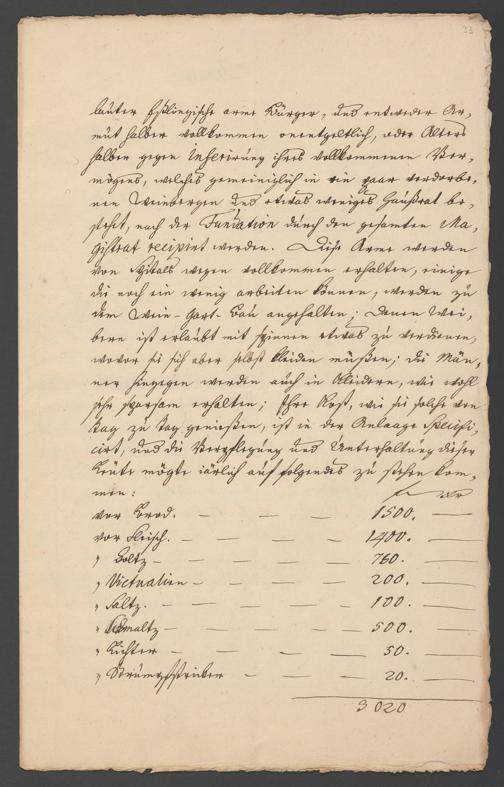 33
lauter Eßlingische arme Bürger, und entweder Ar,
mut halber vollkommen onentgeltlich, oder Alters
halben gegen Inferirung ihres vollkommenen Ver,
mögens, welches gemeiniglich in ein paar verdorbe,
nen Weinbergen und etwas weniges Haußrat be,
stehet, nach der Fundation durch den gesamten Ma,
gistrat recipirt werden. Diese Arme werden
von Spitals wegen vollkommen erhalten, einige
die noch ein wenig arbeiten können, werden zu
dem Wein-Gart-Bau angehalten; denen Wei,
bern ist erlaubt mit spinnen etwas zu verdienen,
wovor sie sich aber selbst kleiden müßen; die Män,
ner hingegen werden auch in Kleidern, wie wohl
sehr sparsam erhalten; Ihre Kost, wie sie solche von
Tag zu Tag genießen, ist in der Anlaage Specifi,
cirt, und die Verpflegung und Unterhaltung dieser
Leute mögte järlich auf folgendes zu stehen kom,
men:
vor Brod. — — — 1500. —
vor Fleisch. — — — 1400. —
" Holtz — — — 760. —
" Victualien — — — 200. —
" Saltz. — — — 100. —
" Schmaltz — — — 500. —
" Lichter — — — 50. —
" — — — 20. —
3020